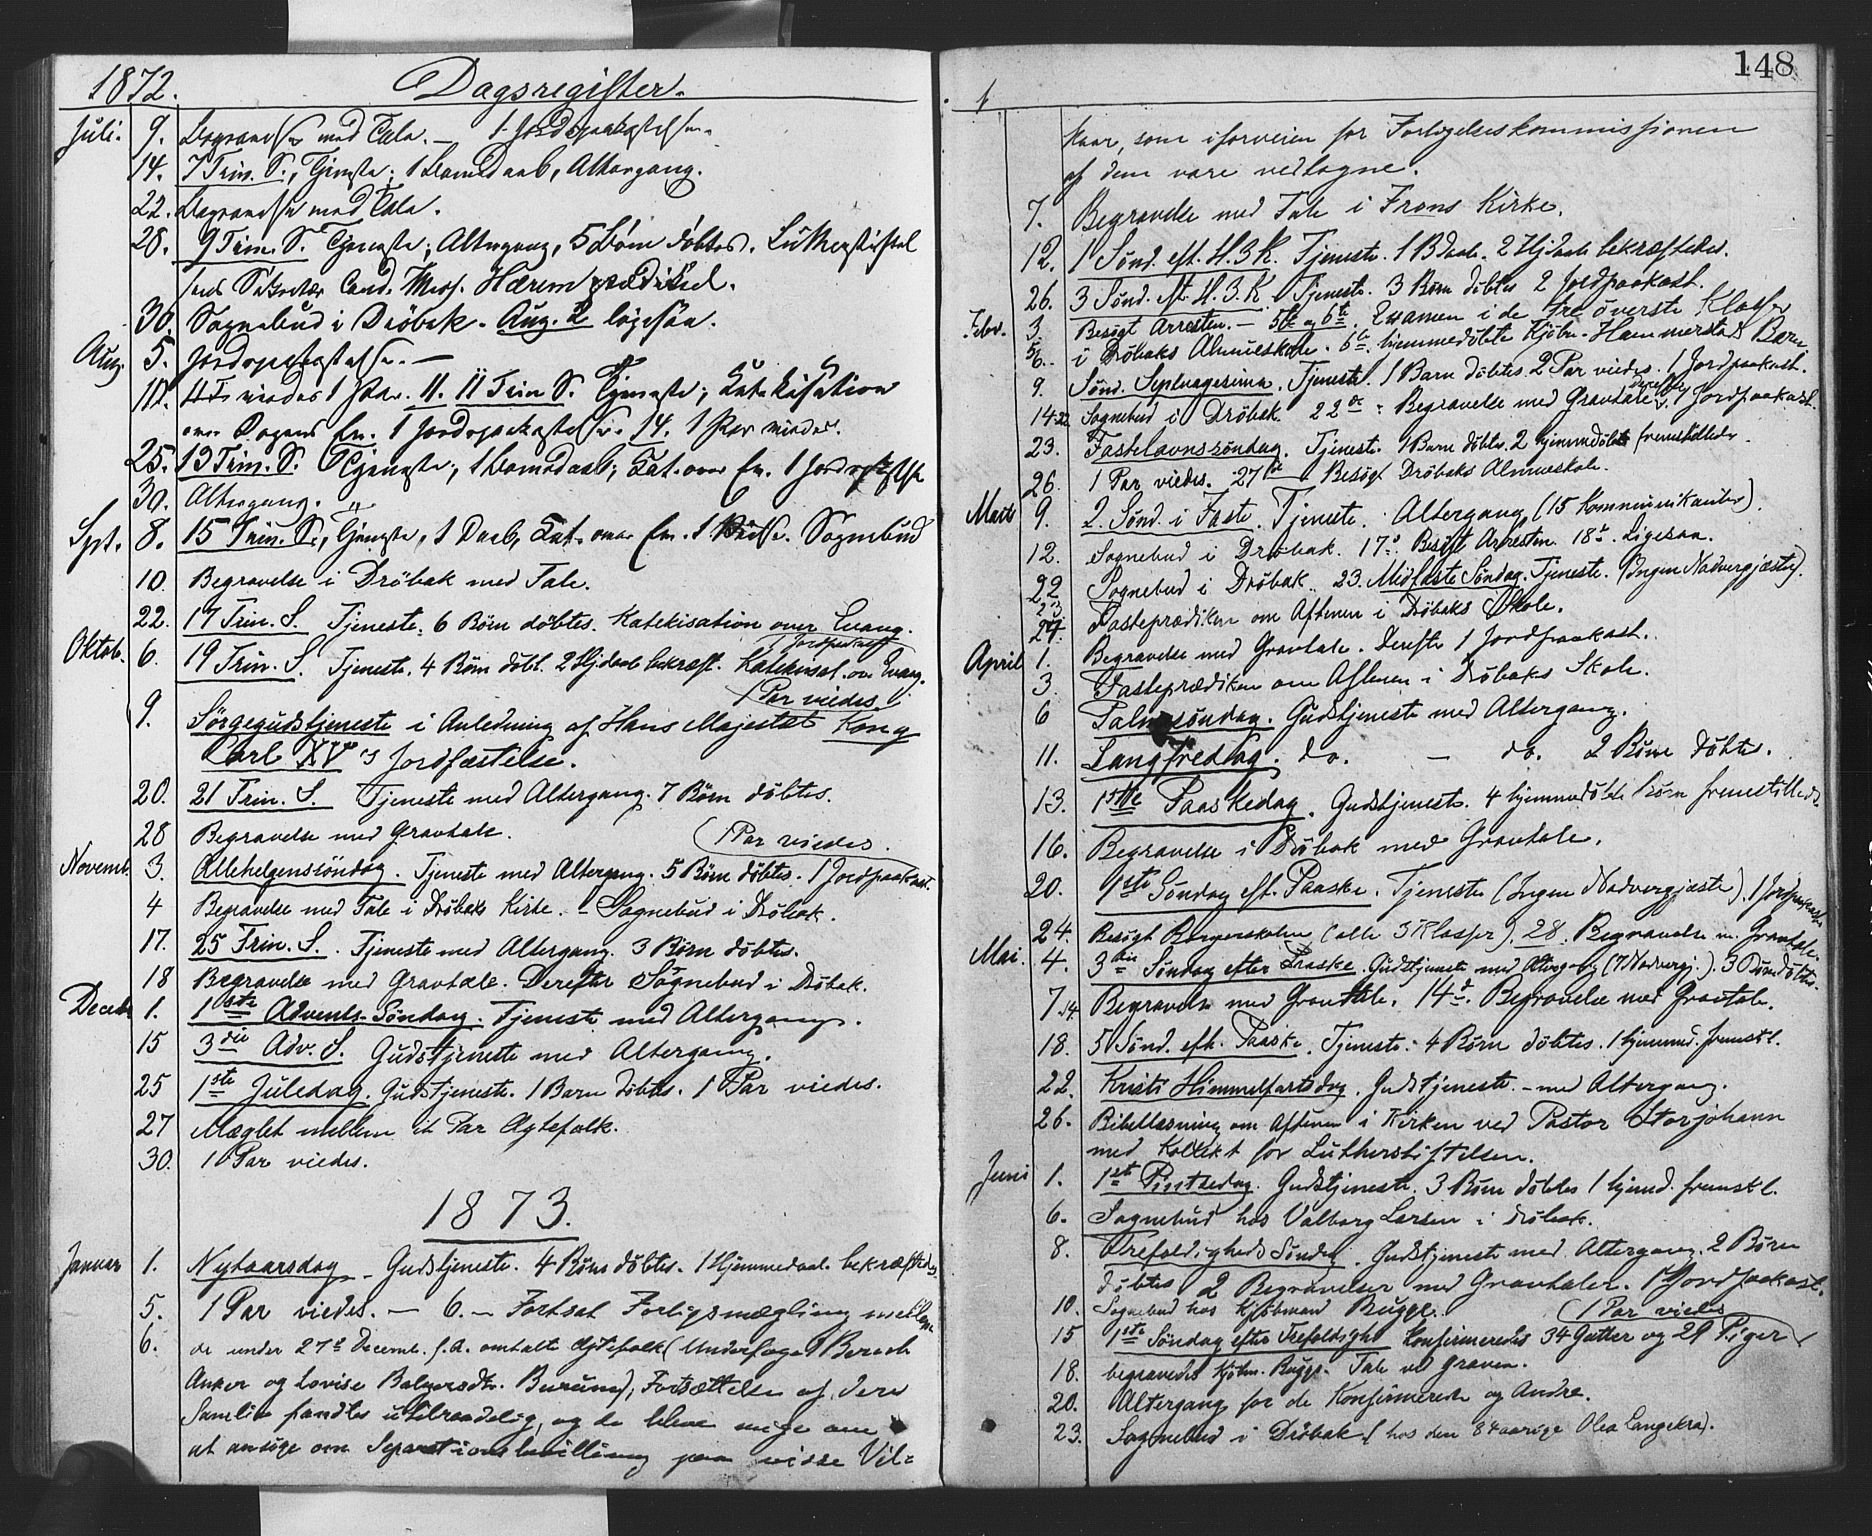 1872. Dagsregister.
Juli. 9. Begravelse med Tale. — 1 Jordspaakastelse.
14. 7 Trin. S., Tjeneste; 1 Barnedaab, Altergang.
22. Begravelse med Tale.
28. 9 Trin. S. Tjeneste; Altergang, 5 Børn døbtes. Lutherstiftel
sens Sekretær Cand. Theol. Hærem prædiked.
30. Sognebud i Drøbak. Aug. 2 ligesaa.
Aug. 5. Jordspaakastelse. —
10. viedes 1 Par. 11. 11 Trin S. Tjeneste; Katekisation
over Dagens Ev. 1 Jordspaakastelse. 14. 1 Par viedes.
25. 13 Trin. S. Tjeneste, 1 Barnedaab; Kat. over Ev. 1 Jordspaakast
30. Altergang.
Spt. 8. 15 Trin. S., Tjeneste, 1 Daab, Kat. over Ev. 1 Vielse. Sognebud
10. Begravelse i Drøbak med Tale.
22. 17 Trin. S. Tjeneste. 6 Børn døbtes. Katekisation over Evang.
1 Jordpaakast
Oktob. 6. 19 Trin. S. Tjeneste. 4 Børn døbt. 2 Hjdaab bekræft. Katekisat. ov. Evang.
1 Par viedes
9. Sørgegudstjeneste i Anledning af Hans Majestæt Kong
Carl XV's Jordfæstelse.
20. 21 Trin. S. Tjeneste med Altergang. 7 Børn døbtes.
28 Begravelse med Gravtale. 1 Par viedes.
Novemb. 3. Allehelgenssöndag. Tjeneste med Altergang. 5 Børn døbtes. 1 Jordpaakast.
4 Begravelse med Tale i Drøbaks Kirke. – Sognebud i Drøbak.
17. 25 Trin. S. Tjeneste med Altergang. 3 Børn døbtes.
18 Begravelse med Gravtale. Derefter Sognebud i Drøbak.
Decemb 1. 1ste Advents-Söndag. Tjeneste med Altergang.
15 3die Adv. S. Gudstjeneste med Altergang.
25 1ste Juledag. Gudstjeneste. 1 Barn døbtes. 1 Par viedes.
27 Mæglet mellem et Par Ægtefolk.
30. 1 Par viedes.
1873.
Januar 1. Nytaarsdag – Gudstjeneste. 4 Børn døbtes. 1 Hjemmedaab bekræftedes
5. 1 Par viedes. — 6. – Fortsat Forligsmægling mellem
6. de under 27de Decemb. f. A. omtalt Ægtefolk (Underfoged Berach
Anker og Lovise Balzersdtr. Burum), Fortsættelse af deres
Samliv fandtes utilraadelig, og de bleve enige om
at ansøge om Separationsbevilling paa visse Vil-
148
kaar, som iforveien for Forligelseskommissionen
af dem vare vedtagne.
7. Begravelse med Tale i Frons Kirke.
12. 1 Sönd. eft. H. 3 K. Tjeneste. 1 B Daab. 2 Hjdaab bekræftedes.
26. 3 Sönd. eft. H. 3. K. Tjeneste. 3 Børn døbtes 2 Jordpaakast.
Febr. 3. Besögt Arresten. – 5te og 6te. Examen i de tre överste Klasser
5/6. i Drøbaks Almueskole. 6te hjemmedöbte Kjöbm. Hammerstads Barn.
9. Sönd. Septuagesima. Tjeneste. 1 Barn döbtes. 2 Par viedes. 1 Jordpaakast.
14-22 Sognebud i Drøbak. 22de: Begravelse med Gravtale, derefter 1 Jordpaakast.
23. Fastelavnssöndag. Tjeneste. 1 Barn døbtes. 2 hjemmedöbte fremstilledes.
26. 1 Par viedes. 27de – Besögt Drøbaks Almueskole.
Marts 9. 2. Sönd. i Faste. Tjeneste. Altergang (15 Kommunikanter).
12. Sognebud i Drøbak. 17de. Besögt Arresten. 18de. Ligesaa.
22 Sognebud i Drøbak. 23. Midfaste Söndag. Tjeneste. (Ingen Nadvergjæste).
23
27. Fasteprædiken om Aftenen i Drøbaks Skole.
April 1. Begravelse med Gravtale. Derefter 1 Jordpaakast.
3. Fasteprædiken om Aftenen i Drøbaks Skole.
6 Palmesöndag. Gudstjeneste med Altergang.
11. Langfredag. do. – do. 2 Børn døbtes.
13. 1ste Paaskedag. Gudstjeneste. 4 hjemmedöbte Børn fremstilledes.
16. Begravelse i Drøbak med Gravtale.
20. 1ste Söndag eft. Paaske. Tjeneste (Ingen Nadvergjæste). 1 Jordpaakast.
24. Besögt Borgerskolen (alle 3 Klasser). 28. Begravelse m. Gravtale.
Mai. 4. 3die Söndag efter Paaske. Gudstjeneste med Altergang (7 Nadvergj.). 3 Børn døbtes.
7. 14 Begravelse med Gravtale. 14d. Begravelse med Gravtale.
18. 5 Sönd. eft. Paaske. Tjeneste. 4 Børn döbtes. 1 hjemmed. fremstl.
22. Kristi Himmelfartsdag. Gudstjeneste – med Altergang.
26. Bibellæsning om Aftenen i Kirken ved Pastor Storjohann
med Kollekt for Lutherstiftelsen.
Juni 1. 1ste Pintsedag. Gudstjeneste. 3 Børn døbtes 1 hjemd. fremstl.
6. Sognebud hos Valborg Larsen i Drøbak.
8. Trefoldigheds Söndag. Gudstjeneste med Altergang. 2 Børn
døbtes 2 Begravelser med Gravtaler. 1 Jordpaakast.
10. Sognebud hos Kjöbmand Bugge. 1 Par viedes
15 1ste Söndag efter Trefoldighd Konfirmeredes 34 Gutter og 21 Piger
18. begravedes Kjöbm. Bugge. Tale ved Graven.
20. Altergang for de Konfirmerede og Andre.
23. Sognebud i Drøbak (hos den 84 aarige Olea Langekra).